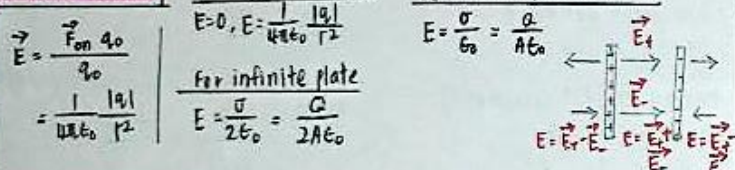 E⃗ = F⃗on q₀ / q₀
= 1/4πε₀ |q|/r²
E=0, E= 1/4πε₀ |q|/r²
For infinite plate
E = σ/2ε₀ = Q/2Aε₀
E = σ/ε₀ = Q/Aε₀
E⃗₊
E⃗₋
E = E⃗₊ - E⃗₋